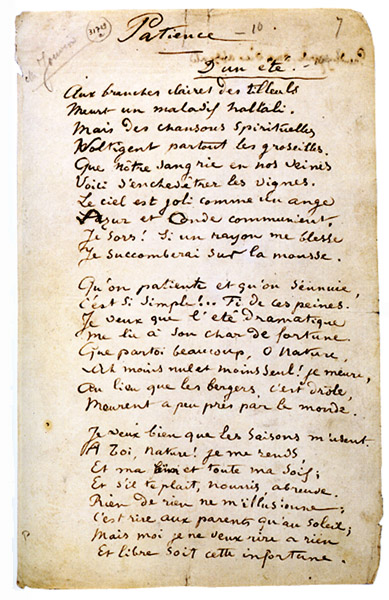 Patience — 10 7
D'un été. —
Aux branches claires des tilleuls
Meurt un maladif hallali.
Mais des chansons spirituelles
Voltigent partout les groseilles.
Que notre sang rie en nos veines
Voici s'enchevêtrer les vignes.
Le ciel est joli comme un ange
Azur et Onde communient,
Je sors! Si un rayon me blesse
Je succomberai sur la mousse.
Qu'on patiente et qu'on s'ennuie,
C'est si simple!... Fi de ces peines.
Je veux que l'été dramatique
Me lie à son char de fortune.
Que par toi beaucoup, ô Nature,
Ah moins nul et moins seul! je meure,
Au lieu que les bergers, c'est drôle,
Meurent à peu près par le monde.
Je veux bien que les saisons m'usent.
A Toi, Nature! je me rends,
Et ma faim et toute ma soif;
Et s'il te plaît, nourris, abreuve.
Rien de rien ne m'illusionne;
C'est rire aux parents qu'au soleil;
Mais moi je ne veux rire à rien
Et libre soit cette infortune.